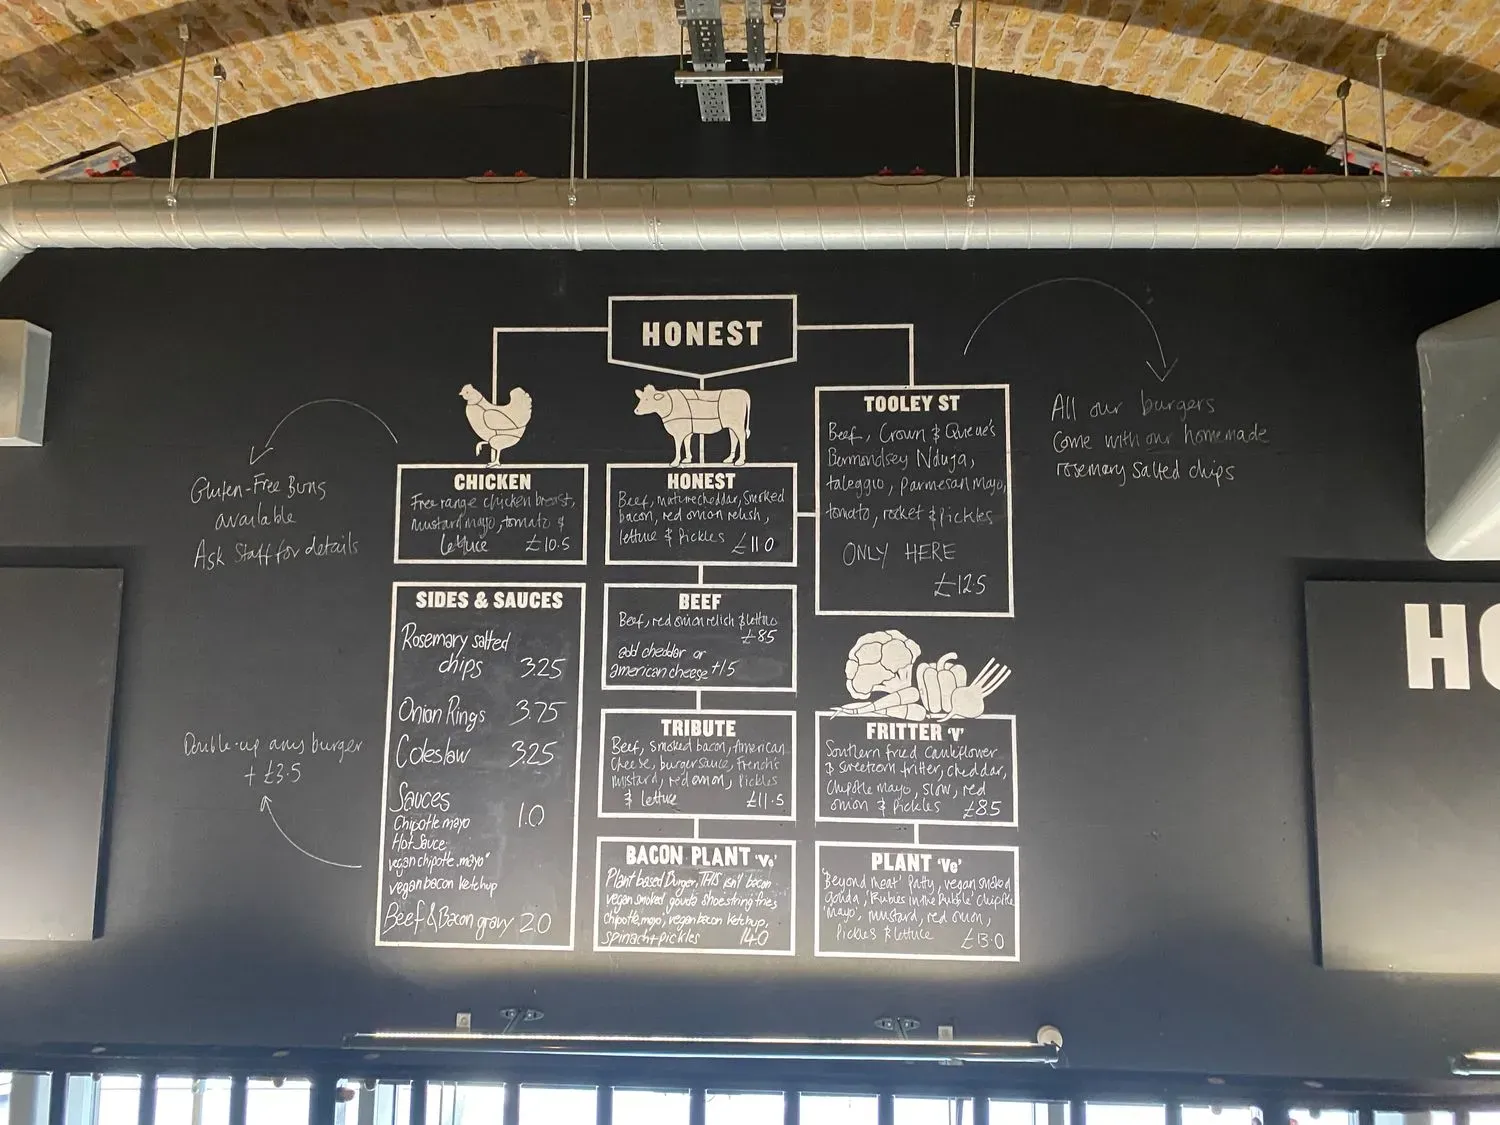 HONEST
CHICKEN
Free range chicken breast,
mustard mayo, tomato &
lettuce £10.5
SIDES & SAUCES
Rosemary salted
chips 3.25
Onion Rings 3.75
Coleslaw 3.25
Sauces 1.0
Chipotle mayo
Hot Sauce
vegan chipotle "mayo"
vegan bacon ketchup
Beef & Bacon gravy 2.0
HONEST
Beef, mature cheddar, smoked
bacon, red onion relish,
lettuce & pickles £11.0
BEEF
Beef, red onion relish & lettuce
£8.5
add cheddar or
american cheese +1.5
TRIBUTE
Beef, smoked bacon, American
cheese, burger sauce, French's
mustard, red onion, pickles
& lettuce £11.5
BACON PLANT 'Ve'
Plant based Burger, THIS isn't bacon
vegan smoked gouda shoestring fries
chipotle mayo, vegan bacon ketchup,
spinach + pickles 14.0
TOOLEY ST
Beef, Crown & Queue's
Bermondsey Nduja,
taleggio, parmesan mayo,
tomato, rocket & pickles
ONLY HERE
£12.5
FRITTER 'V'
Southern fried Cauliflower
& sweetcorn fritter, cheddar,
Chipotle mayo, slow, red
onion & pickles £8.5
PLANT 'Ve'
'Beyond meat' patty, vegan smoked
gouda, 'Rubies in the Rubble' chipotle
'mayo', mustard, red onion,
pickles & lettuce £13.0
Gluten-Free Buns
available
Ask Staff for details
Double-up any burger
+ £3.5
All our burgers
come with our homemade
rosemary salted chips
HO